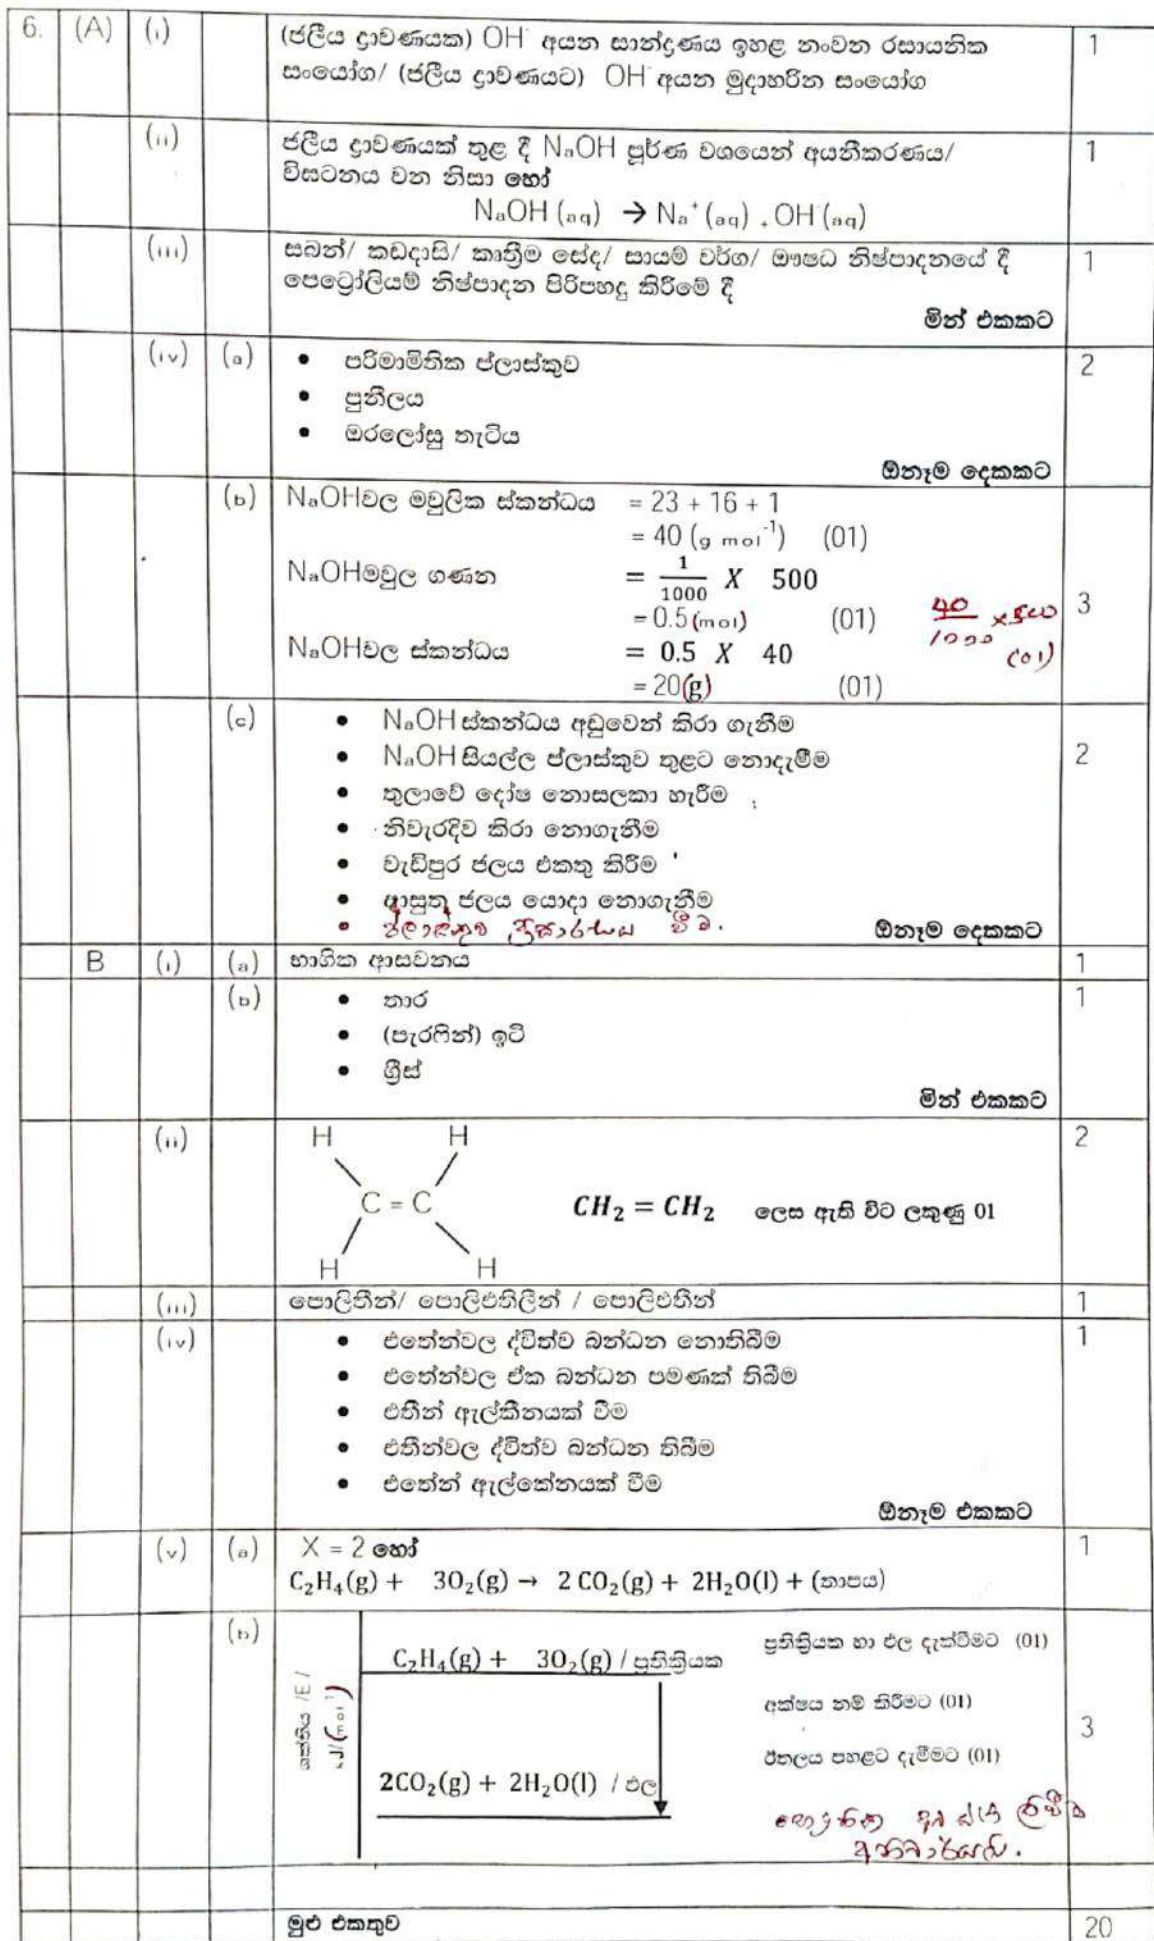 6. (A) (i) (ජලීය ද්‍රාවණයක) OH⁻ අයන සාන්ද්‍රණය ඉහළ නංවන රසායනික 1
සංයෝග/ (ජලීය ද්‍රාවණයට) OH⁻ අයන මුදාහරින සංයෝග
(ii) ජලීය ද්‍රාවණයක් තුළ දී NaOH පූර්ණ වශයෙන් අයනීකරණය/ 1
විඝටනය වන නිසා හෝ
NaOH (aq) → Na⁺ (aq) + OH⁻(aq)
(iii) සබන්/ කඩදාසි/ කෘත්‍රීම සේද/ සායම් වර්ග/ ඖෂධ නිෂ්පාදනයේ දී 1
පෙට්‍රෝලියම් නිෂ්පාදන පිරිපහදු කිරීමේ දී
මින් එකකට
(iv) (a) • පරිමාමිතික ප්ලාස්කුව 2
• පුනීලය
• ඔරලෝසු තැටිය
ඕනෑම දෙකකට
(b) NaOHවල මවුලික ස්කන්ධය = 23 + 16 + 1
= 40 (g mol⁻¹) (01)
NaOHමවුල ගණන = 1/1000 X 500
= 0.5 (mol) (01) 40/1000 x500 3
NaOHවල ස්කන්ධය = 0.5 X 40 (01)
= 20(g) (01)
(c) • NaOH ස්කන්ධය අඩුවෙන් කිරා ගැනීම
• NaOH සියල්ල ප්ලාස්කුව තුළට නොදැමීම 2
• තුලාවේ දෝෂ නොසලකා හැරීම
• නිවැරදිව කිරා නොගැනීම
• වැඩිපුර ජලය එකතු කිරීම
• ආසුත ජලය යොදා නොගැනීම
• ප්ලාස්කුව ප්‍රසාරණය වීම. ඕනෑම දෙකකට
B (i) (a) භාගික ආසවනය 1
(b) • තාර 1
• (පැරෆින්) ඉටි
• ග්‍රීස්
මින් එකකට
(ii) H H 2
C = C CH₂ = CH₂ ලෙස ඇති විට ලකුණු 01
H H
(iii) පොලිතීන්/ පොලිඑතිලීන් / පොලිඑතීන් 1
(iv) • එතේන්වල ද්විත්ව බන්ධන නොතිබීම 1
• එතේන්වල ඒක බන්ධන පමණක් තිබීම
• එතීන් ඇල්කීනයක් වීම
• එතීන්වල ද්විත්ව බන්ධන තිබීම
• එතේන් ඇල්කේනයක් වීම
ඕනෑම එකකට
(v) (a) X = 2 හෝ 1
C₂H₄(g) + 3O₂(g) → 2 CO₂(g) + 2H₂O(l) + (තාපය)
(b) ප්‍රතික්‍රියක හා ඵල දැක්වීමට (01)
C₂H₄(g) + 3O₂(g) / ප්‍රතික්‍රියක
ශක්තිය /E / kJ/(mol⁻¹)
අක්ෂය නම් කිරීමට (01)
3
ඊතලය පහළට දැමීමට (01)
2CO₂(g) + 2H₂O(l) / ඵල
අනිවාර්යයි.
මුළු එකතුව 20